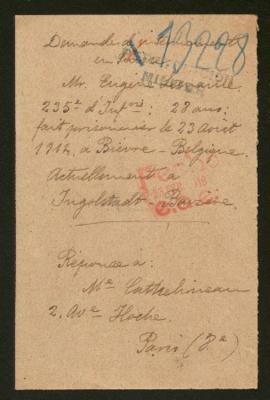 13228
Demande de renseignements
en Suisse.
Mr. Eugène
235e d'Infrie : 28 ans :
fait prisonnier le 23 Août
1914, a Bièvre - Belgique.
Actuellement a
Ingolstadt - Bavière
Réponse a :
Me Cathelineau
2. Ave Hoche.
Paris